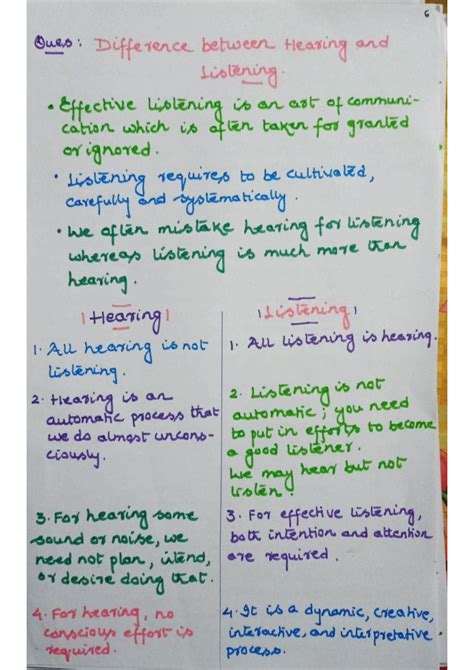 6
Ques: Difference between Hearing and
Listening.
• Effective listening is an art of communi-
cation which is often taken for granted
or ignored.
• Listening requires to be cultivated,
carefully and systematically.
• We often mistake hearing for listening
whereas listening is much more than
hearing.
Hearing
1. All hearing is not
listening.
2. Hearing is an
automatic process that
we do almost uncons-
ciously.
3. For hearing some
sound or noise, we
need not plan, intend,
or desire doing that.
4. For hearing, no
conscious effort is
required.
Listening
1. All listening is hearing.
2. Listening is not
automatic; you need
to put in efforts to become
a good listener.
We may hear but not
listen.
3. For effective listening,
both intention and attention
are required.
4. It is a dynamic, creative,
interactive, and interpretative
process.